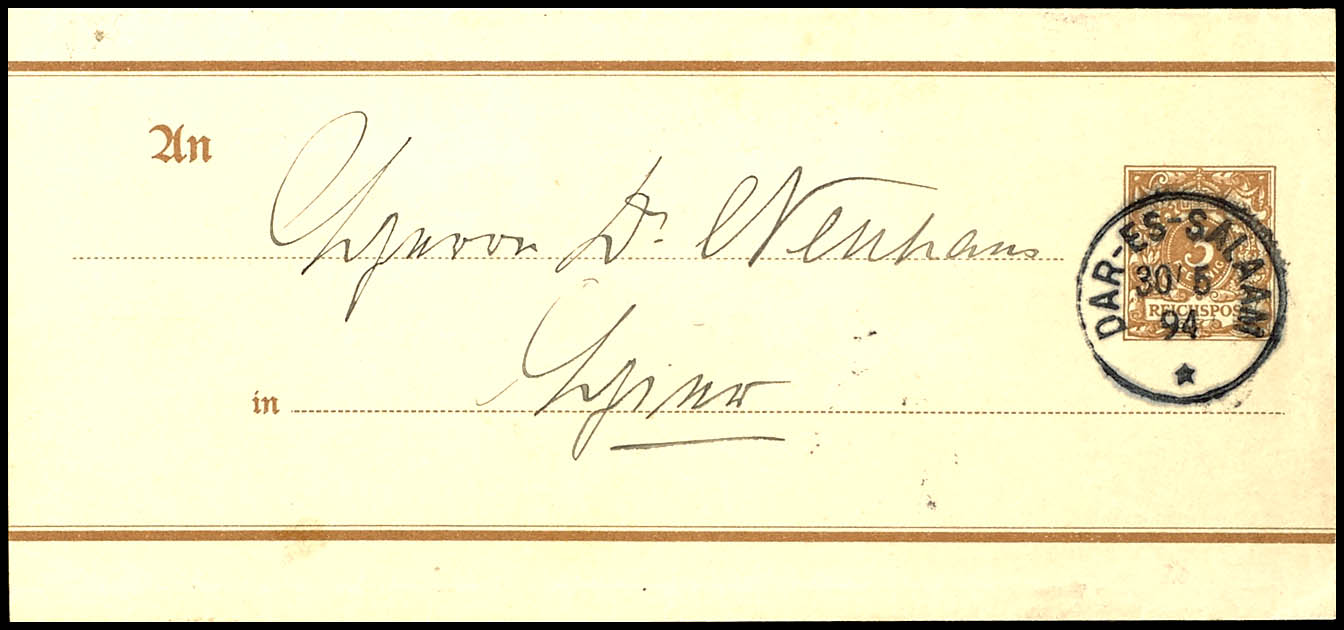 An
Herrn Dr. Neuhaus
in Hier
3
PFENNIG
REICHSPOST
DAR-ES-SALAAM
30/5
94